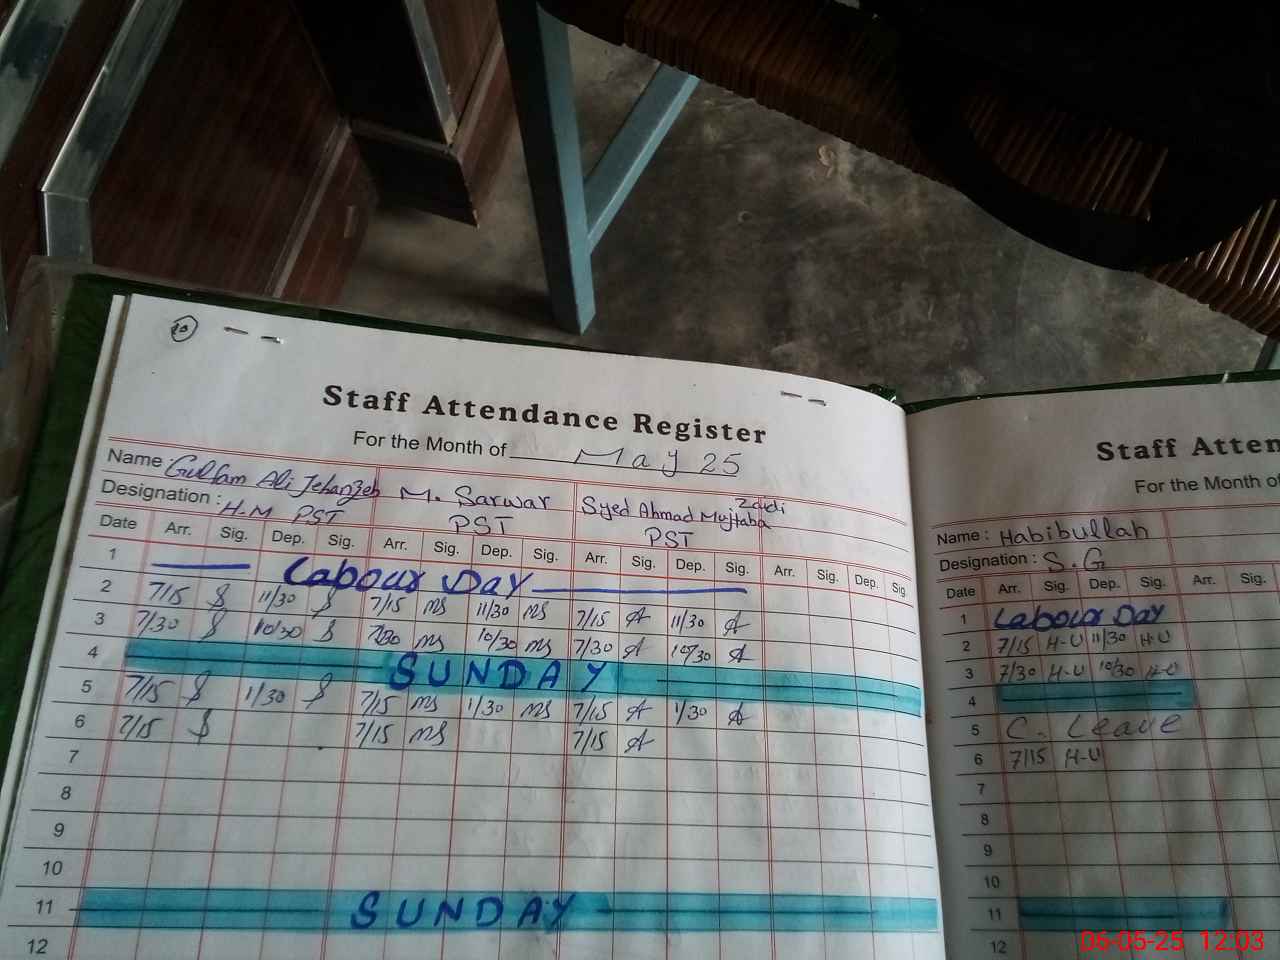 10
Staff Attendance Register
For the Month of May 25
Name: Gulfam Ali Jehanzeb M. Sarwar Syed Ahmad Mujtaba Zaidi
Designation: H.M PST PST PST
Date Arr. Sig. Dep. Sig. Arr. Sig. Dep. Sig. Arr. Sig. Dep. Sig. Arr. Sig. Dep. Sig.
1 Labour Day
2 7/15 11/30 7/15 MS 11/30 MS 7/15 A 11/30 A
3 7/30 10/30 7/30 MS 10/30 MS 7/30 A 10/30 A
4 SUNDAY
5 7/15 1/30 7/15 MS 1/30 MS 7/15 A 1/30 A
6 7/15 7/15 MS 7/15 A
7
8
9
10
11 SUNDAY
12
Staff Atten
For the Month of
Name: Habibullah
Designation: S.G
Date Arr. Sig. Dep. Sig. Arr. Sig.
1 Labour Day
2 7/15 H-U 11/30 H-U
3 7/30 H-U 10/30 H-U
4
5 C. Leave
6 7/15 H-U
7
8
9
10
11
12
06-05-25 12:03